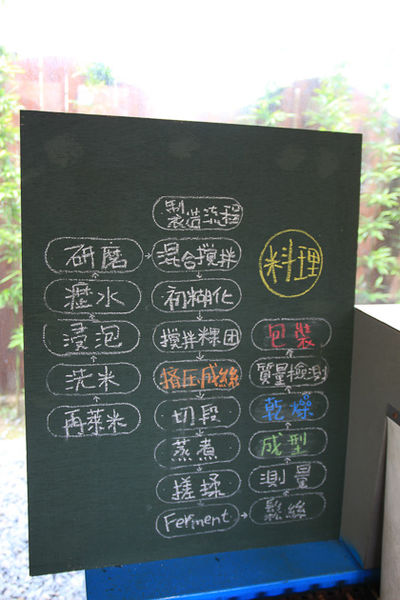 製造流程
料理
研磨
瀝水
浸泡
洗米
再萊米
混合攪拌
初糊化
攪拌粿团
挤压成絲
切段
蒸煮
搓揉
Ferment
包裝
質量檢測
乾燥
成型
測量
鬆絲